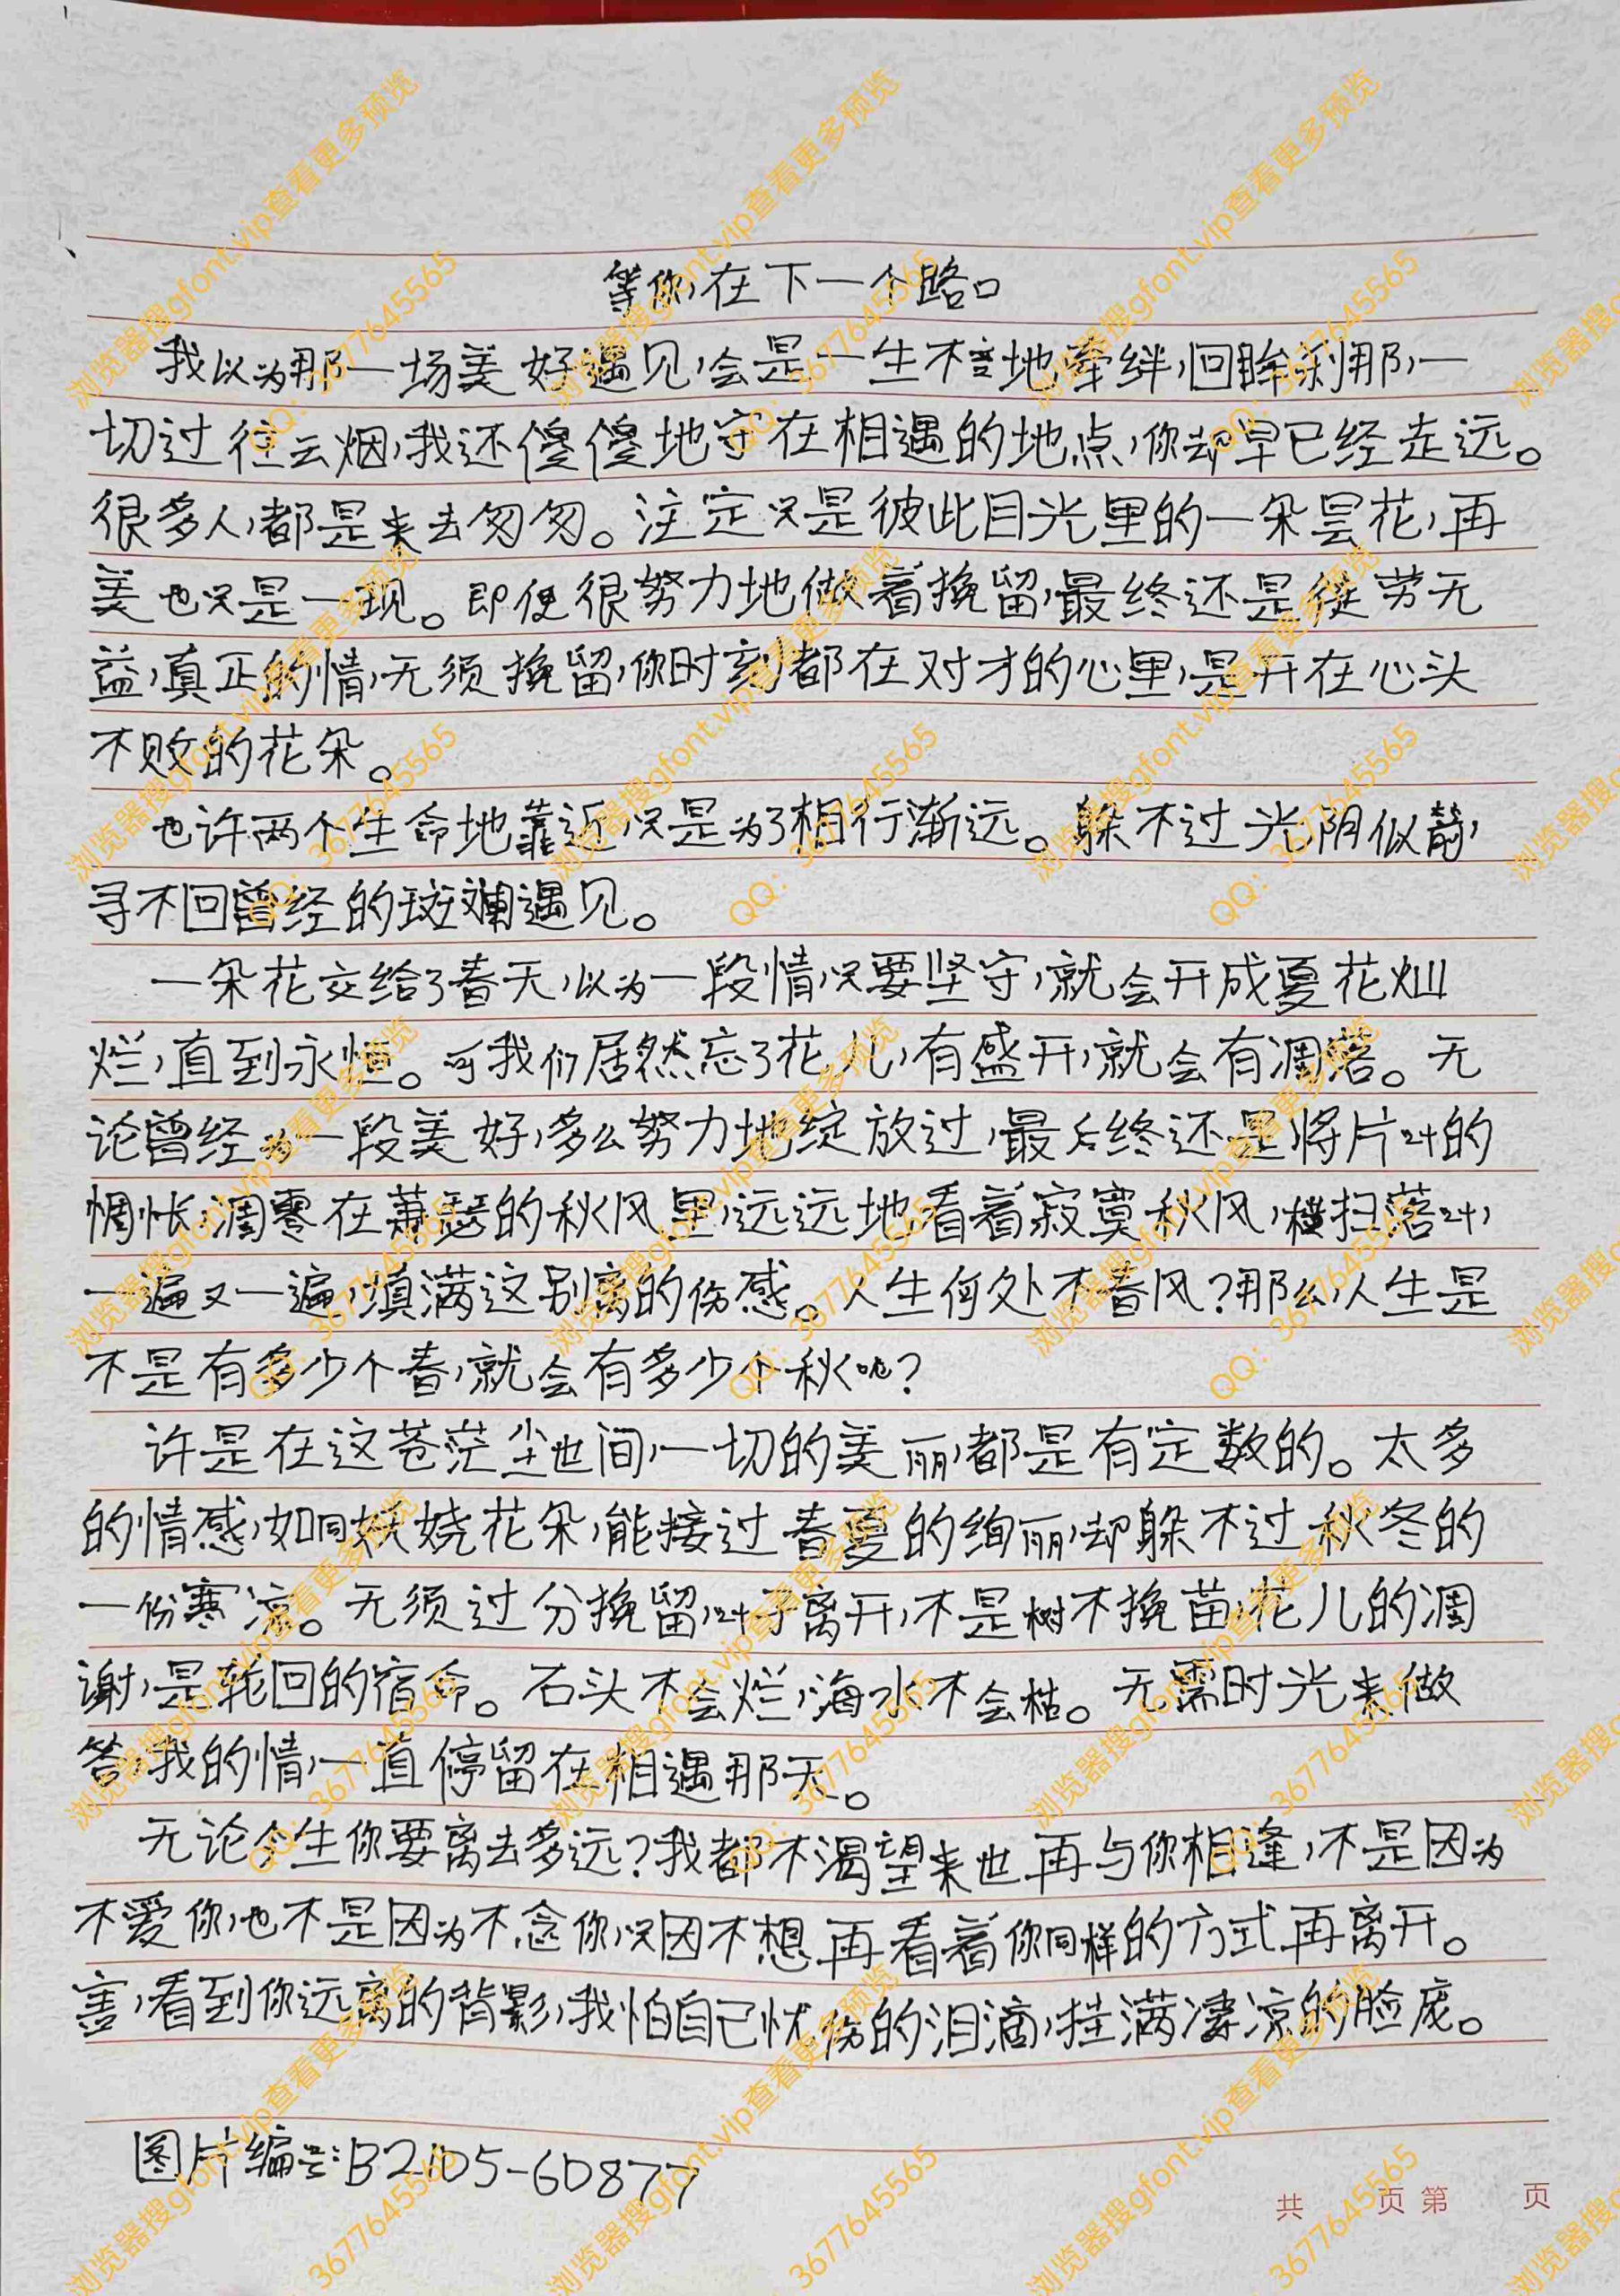 等你,在下一个路口
我以为那一场美好遇见,会是一生不变地牵绊,回眸刹那,一
切过往云烟,我还傻傻地守在相遇的地点,你却早已经走远。
很多人,都是来去匆匆。注定只是彼此目光里的一朵昙花,再
美也只是一现。即便很努力地做着挽留,最终还是徒劳无
益,真正的情,无须挽留,你时刻都在对才的心里,是开在心头
不败的花朵。
也许两个生命地靠近,只是为了相行渐远。躲不过光阴似箭,
寻不回曾经的斑斓遇见。
一朵花交给了春天,以为一段情,只要坚守,就会开成夏花灿
烂,直到永恒。可我们居然忘了花儿,有盛开,就会有凋落。无
论曾经为一段美好,多么努力地绽放过,最后终还是将片叶的
惆怅,凋零在萧瑟的秋风里,远远地看着寂寞秋风,横扫落叶,
一遍又一遍,填满这别离的伤感。人生何处不春风?那么,人生是
不是有多少个春,就会有多少个秋呢?
许是在这苍茫尘世间,一切的美丽,都是有定数的。太多
的情感,如同妖娆花朵,能接过春夏的绚丽,却躲不过秋冬的
一份寒凉。无须过分挽留,叶子离开,不是树不挽苗,花儿的凋
谢,是轮回的宿命。石头不会烂,海水不会枯。无需时光来做
答,我的情,一直停留在相遇那天。
无论今生你要离去多远?我都不渴望来世再与你相逢,不是因为
不爱你,也不是因为不念你,只因不想再看着你同样的方式再离开。
害,看到你远离的背影,我怕自己忧伤的泪滴,挂满凄凉的脸庞。
图片编号:B2105-60877
共 页 第 页
浏览器搜gfont.vip查看更多预览
QQ:3677645565